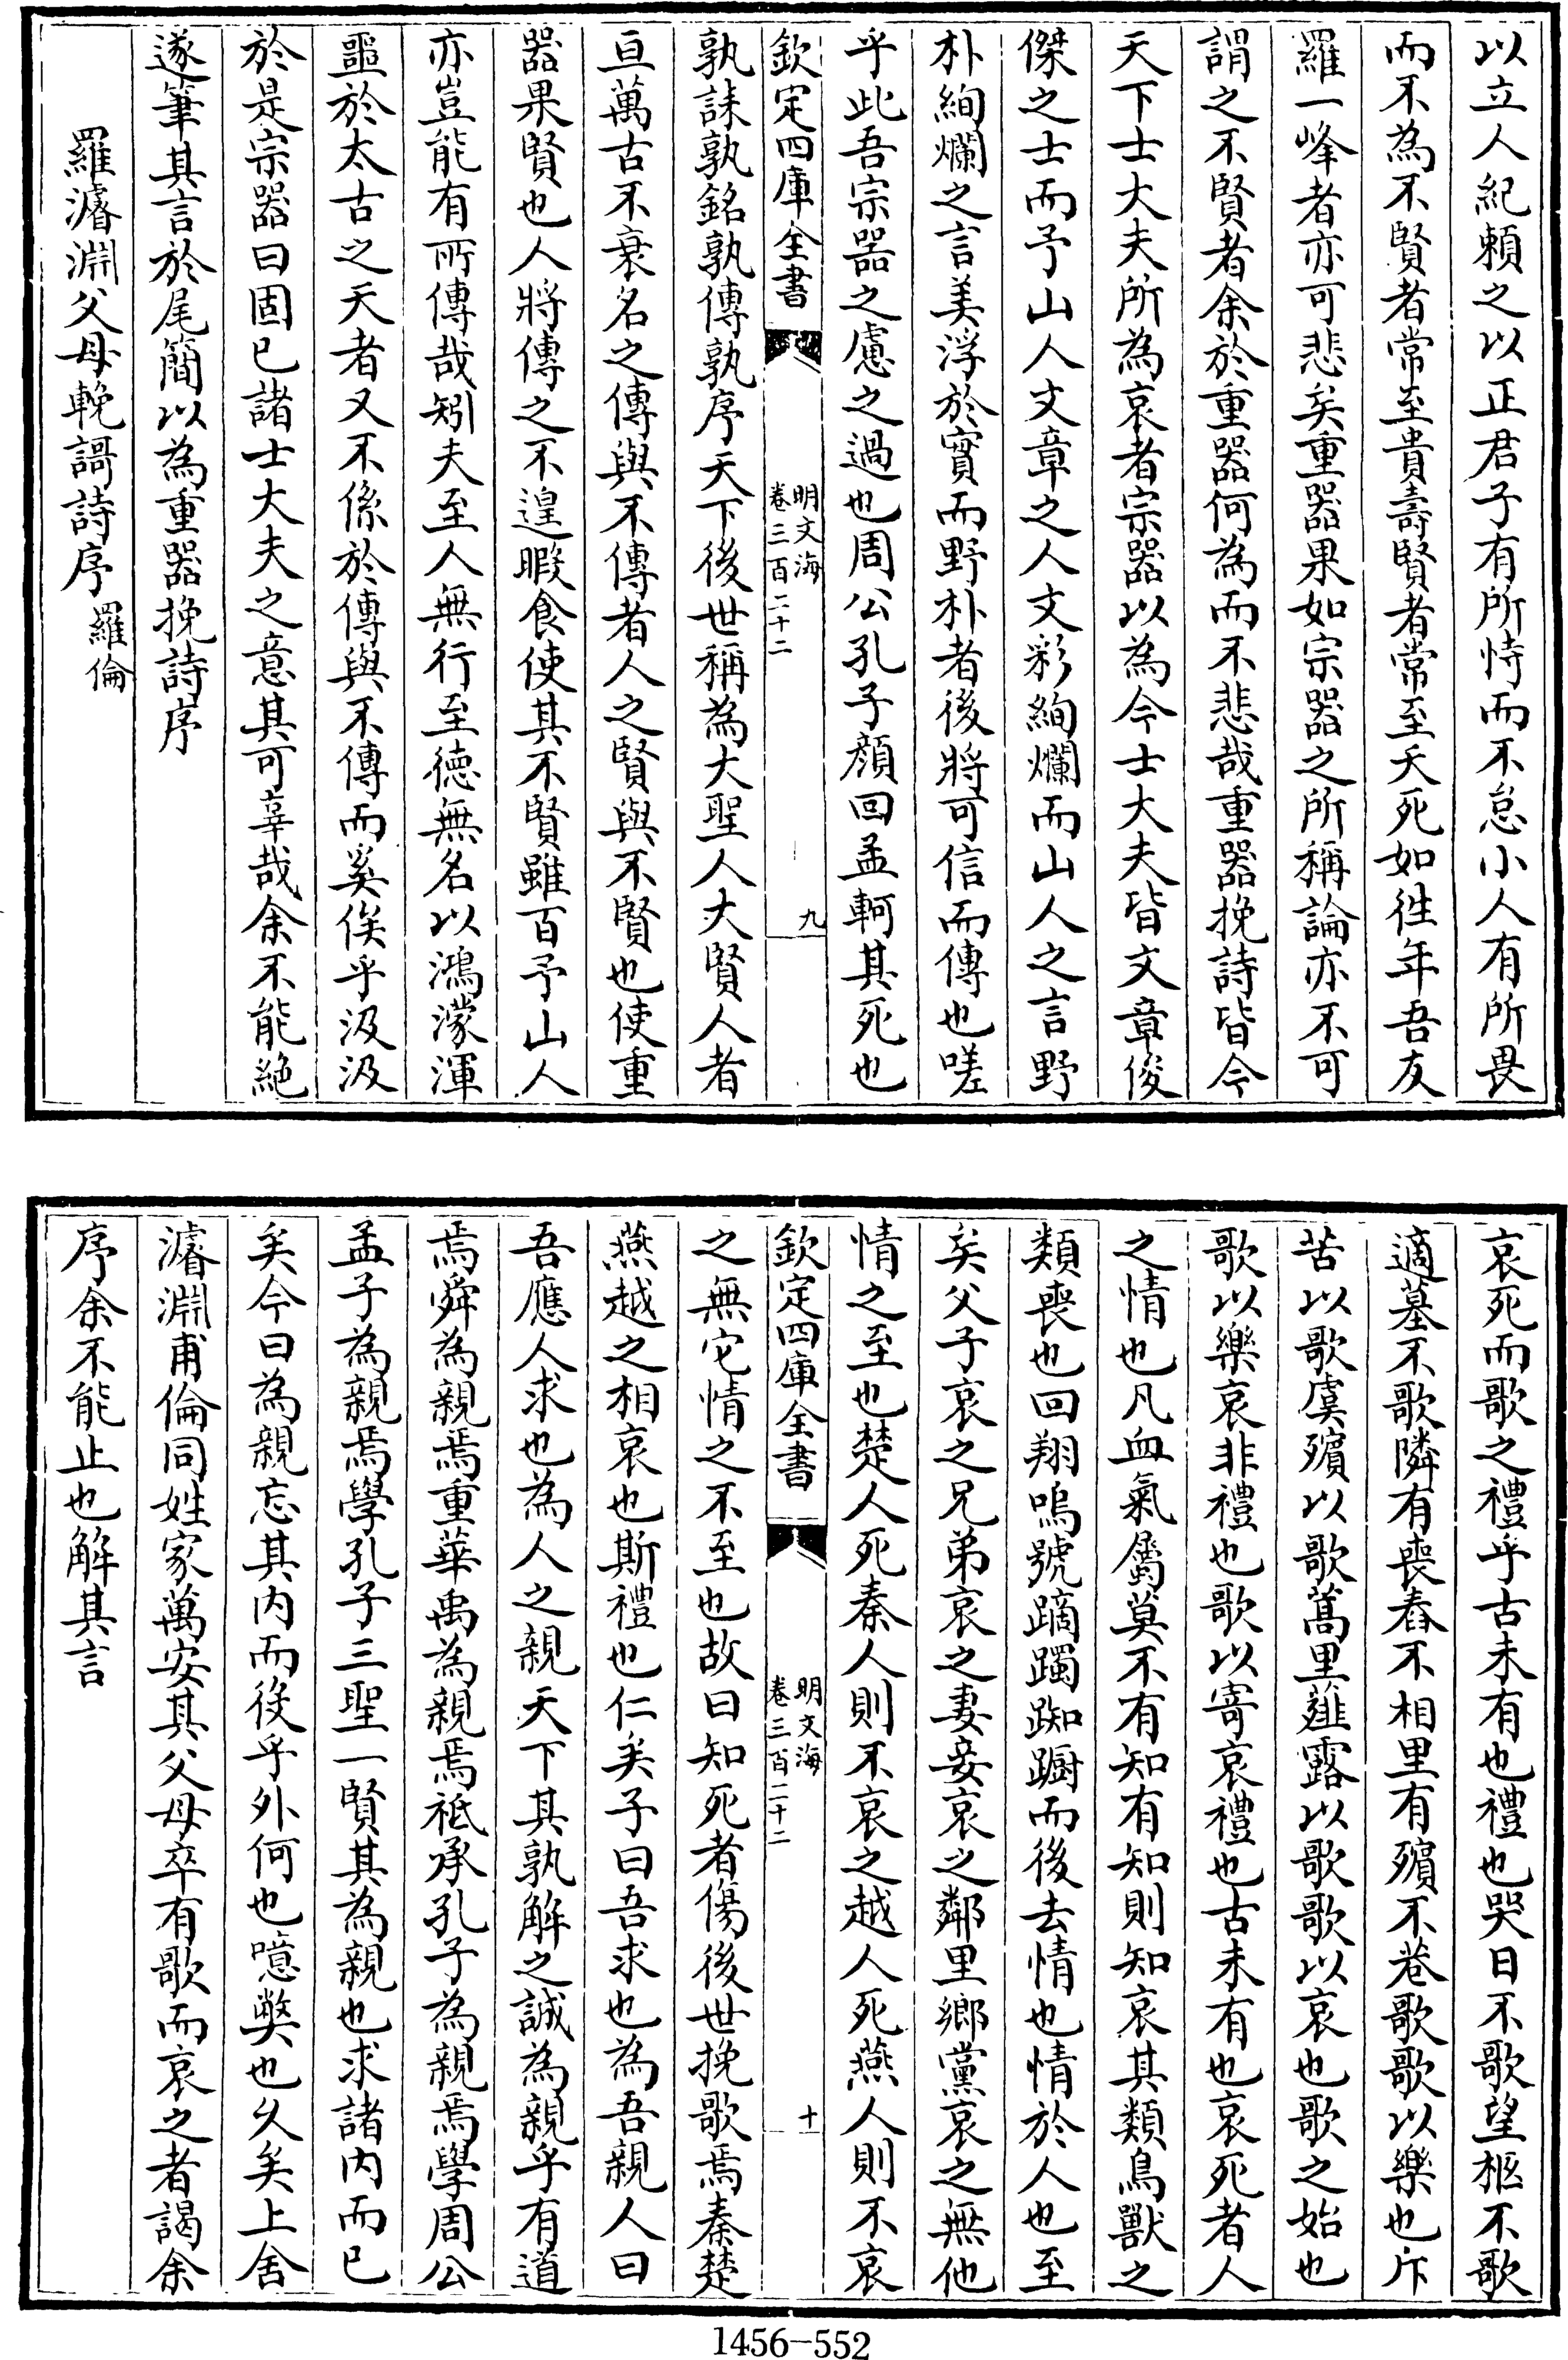 以立人紀頼之以正君子有所恃而不怠小人有所畏
而不為不賢者常至貴壽賢者常至夭死如徃年吾友
羅一峰者亦可悲矣重器果如宗器之所稱論亦不可
謂之不賢者余於重器何為而不悲哉重器挽詩皆今
天下士大夫所為哀者宗器以為今士大夫皆文章俊
傑之士而予山人文章之人文彩絢爛而山人之言野
朴絢爛之言美浮於實而野朴者後將可信而傳也嗟
乎此吾宗器之慮之過也周公孔子顔回孟軻其死也
欽定四庫全書
明文海
卷三百二十二
九
孰誄孰銘孰傳孰序天下後世稱為大聖人大賢人者
亘萬古不衰名之傳與不傳者人之賢與不賢也使重
器果賢也人將傳之不遑暇食使其不賢雖百予山人
亦豈能有所傳哉矧夫至人無行至徳無名以鴻濛渾
噩於太古之天者又不係於傳與不傳而奚俟乎汲汲
於是宗器曰固已諸士大夫之意其可辜哉余不能絶
遂筆其言於尾簡以為重器挽詩序
羅濬淵父母輓謌詩序 羅倫
哀死而歌之禮乎古未有也禮也哭日不歌望柩不歌
適墓不歌隣有喪舂不相里有殯不巷歌歌以樂也斥
苦以歌虞殯以歌蒿里薤露以歌歌以哀也歌之始也
歌以樂哀非禮也歌以寄哀禮也古未有也哀死者人
之情也凡血氣屬莫不有知有知則知哀其類鳥獸之
類喪也回翔嗚號蹢躅踟蹰而後去情也情於人也至
矣父子哀之兄弟哀之妻妾哀之鄰里鄉黨哀之無他
情之至也楚人死秦人則不哀之越人死燕人則不哀
欽定四庫全書
明文海
卷三百二十二
十
之無它情之不至也故曰知死者傷後世挽歌焉秦楚
燕越之相哀也斯禮也仁矣子曰吾求也為吾親人曰
吾應人求也為人之親天下其孰解之誠為親乎有道
焉舜為親焉重華禹為親焉祗承孔子為親焉學周公
孟子為親焉學孔子三聖一賢其為親也求諸内而已
矣今曰為親忘其内而役乎外何也噫獘也久矣上舍
濬淵甫倫同姓家萬安其父母卒有歌而哀之者謁余
序余不能止也解其言
1456-552